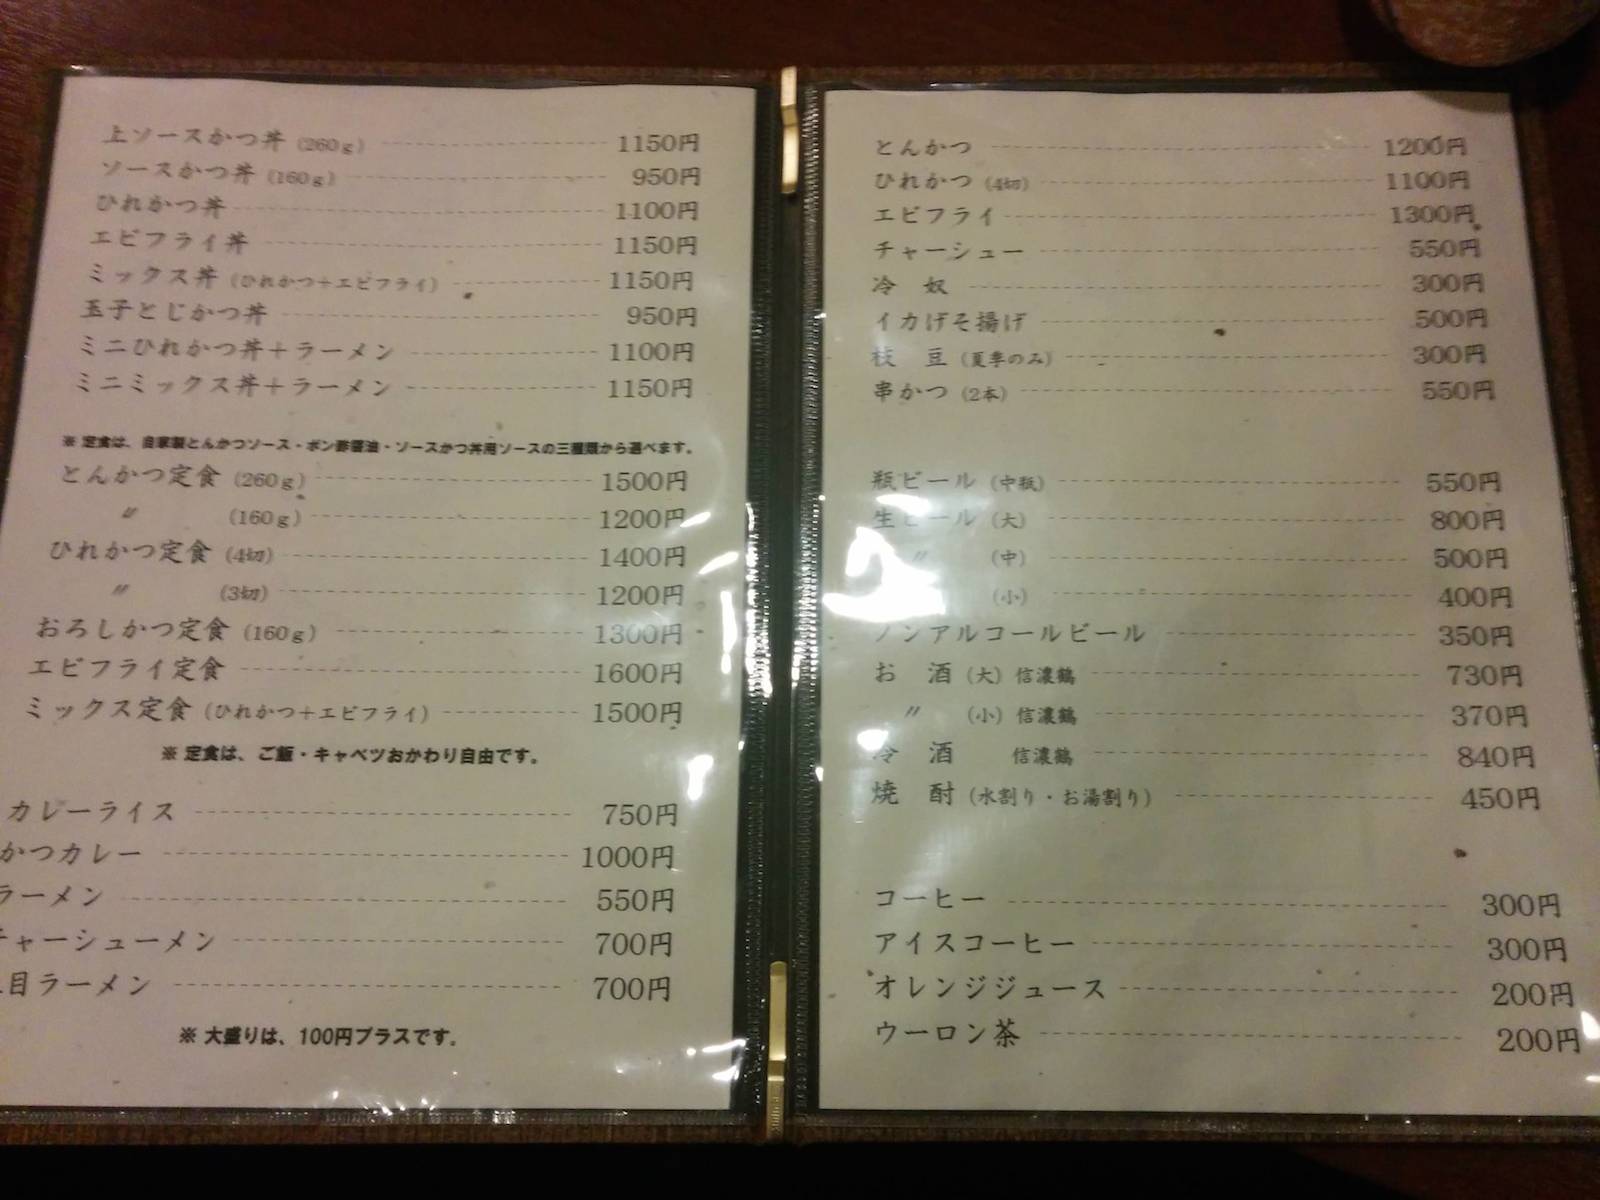 上ソースかつ丼 (260g) 1150円
ソースかつ丼 (160g) 950円
ひれかつ丼 1100円
エビフライ丼 1150円
ミックス丼 (ひれかつ+エビフライ) 1150円
玉子とじかつ丼 950円
ミニひれかつ丼+ラーメン 1100円
ミニミックス丼+ラーメン 1150円
※ 定食は、自家製とんかつソース・ポン酢醤油・ソースかつ丼用ソースの三種類から選べます。
とんかつ定食 (260g) 1500円
〃 (160g) 1200円
ひれかつ定食 (4切) 1400円
〃 (3切) 1200円
おろしかつ定食 (160g) 1300円
エビフライ定食 1600円
ミックス定食 (ひれかつ+エビフライ) 1500円
※ 定食は、ご飯・キャベツおかわり自由です。
カレーライス 750円
かつカレー 1000円
ラーメン 550円
チャーシューメン 700円
目ラーメン 700円
※ 大盛りは、100円プラスです。
とんかつ 1200円
ひれかつ (4切) 1100円
エビフライ 1300円
チャーシュー 550円
冷 奴 300円
イカげそ揚げ 500円
枝 豆 (夏季のみ) 300円
串かつ (2本) 550円
瓶ビール (中瓶) 550円
生ビール (大) 800円
〃 (中) 500円
(小) 400円
ノンアルコールビール 350円
お 酒 (大) 信濃鶴 730円
〃 (小) 信濃鶴 370円
冷 酒 信濃鶴 840円
焼 酎 (水割り・お湯割り) 450円
コーヒー 300円
アイスコーヒー 300円
オレンジジュース 200円
ウーロン茶 200円